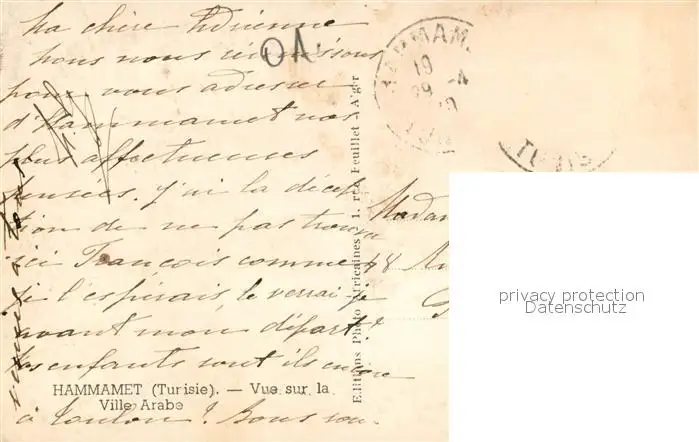 Ma chère Adrienne
nous nous réunissons
pour vous adresser
d'Hammamet nos
plus affectueuses
pensées. j'ai la décep
tion de ne pas trouver
ici François comme
je l'espérais, le verrai je
avant mon départ?
les enfants sont ils encore
à Toulon? Bons
HAMMAMET (Tunisie). — Vue sur la
Ville Arabe
Editions Photo Africaines 1, rue Feuillet - Alger
OA.
HAMMAM
19
29 -4
TUNIS
Madam
48
privacy protection
Datenschutz